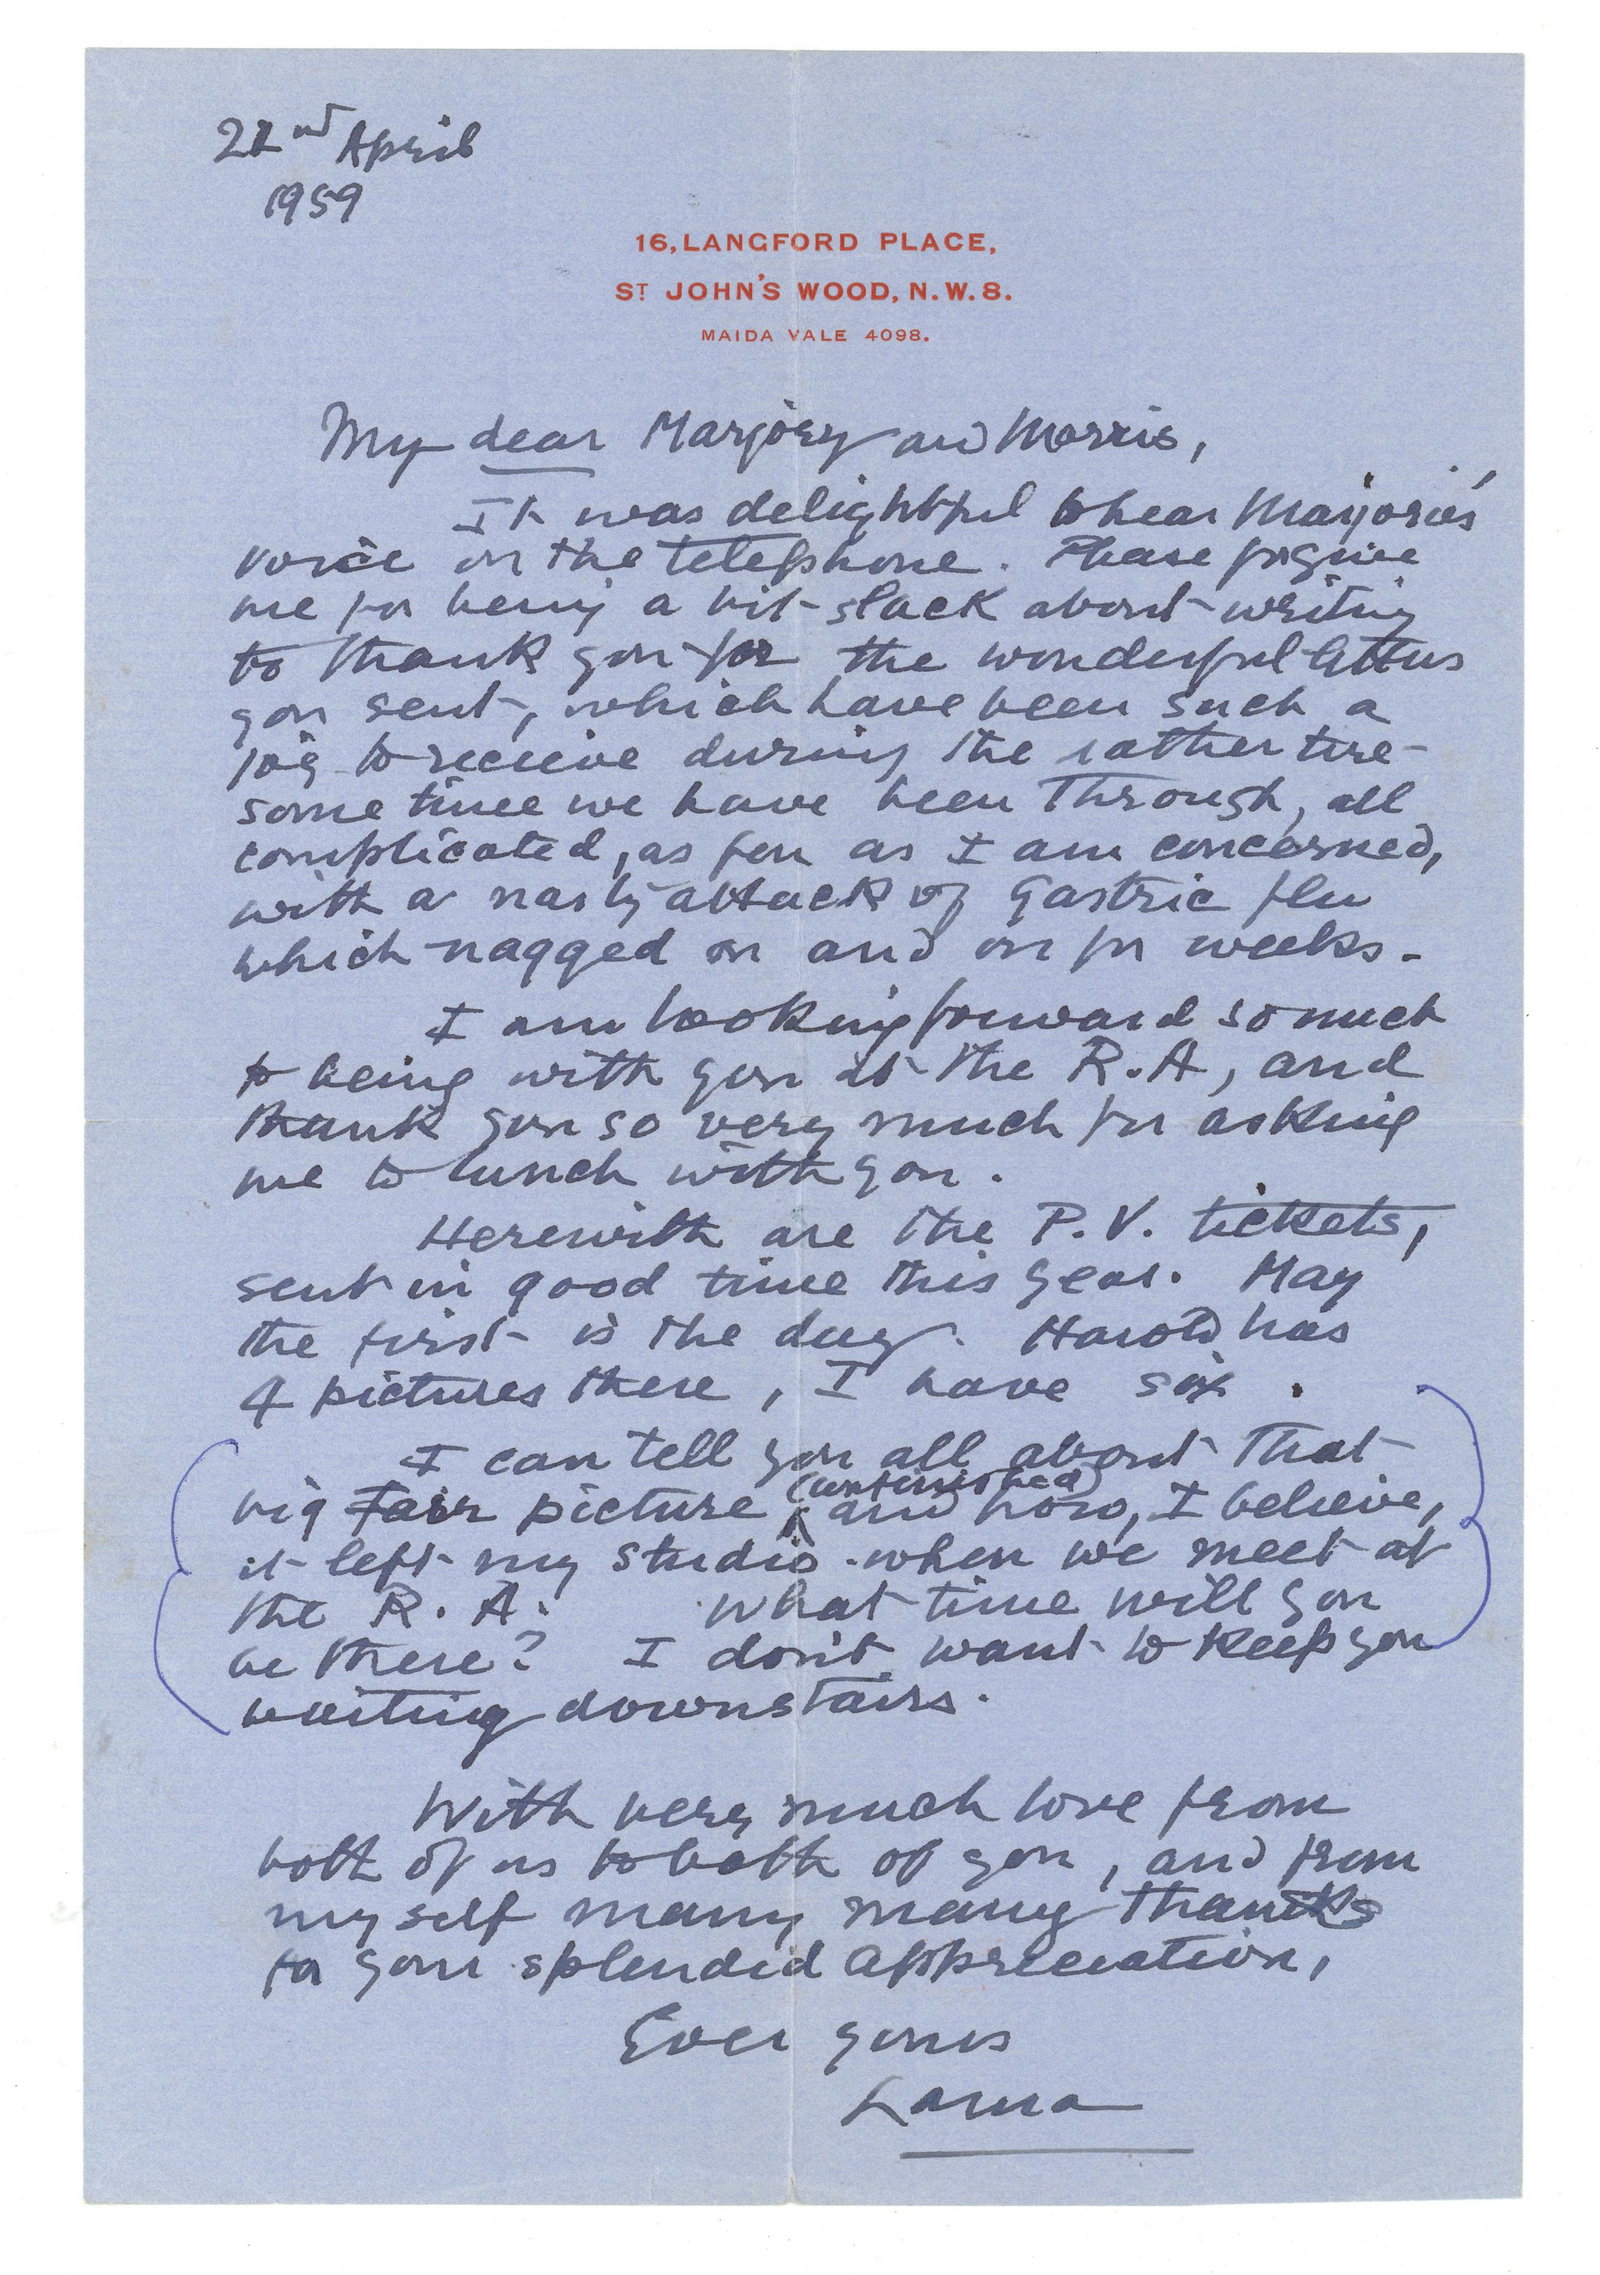 22nd April
1959
16, LANGFORD PLACE,
ST JOHN'S WOOD, N.W.8.
MAIDA VALE 4098.
My dear Marjory and Morris,
It was delightful to hear Marjorie's
voice on the telephone. Please forgive
me for being a bit slack about writing
to thank you for the wonderful letters
you sent, which have been such a
joy to receive during the rather tire-
some time we have been through, all
complicated, as far as I am concerned,
with a nasty attack of gastric flu
which nagged on and on for weeks.
I am looking forward so much
to being with you at the R.A, and
thank you so very much for asking
me to lunch with you.
Herewith are the P.V. tickets,
sent in good time this year. May
the first is the day. Harold has
4 pictures there, I have six.
I can tell you all about that
big Fair picture (unfinished) and how, I believe,
it left my studio - when we meet at
the R. A. What time will you
be there? I don't want to keep you
waiting downstairs.
With very much love from
both of us to both of you, and from
myself many many thanks
for your splendid appreciation,
Ever yours
Laura